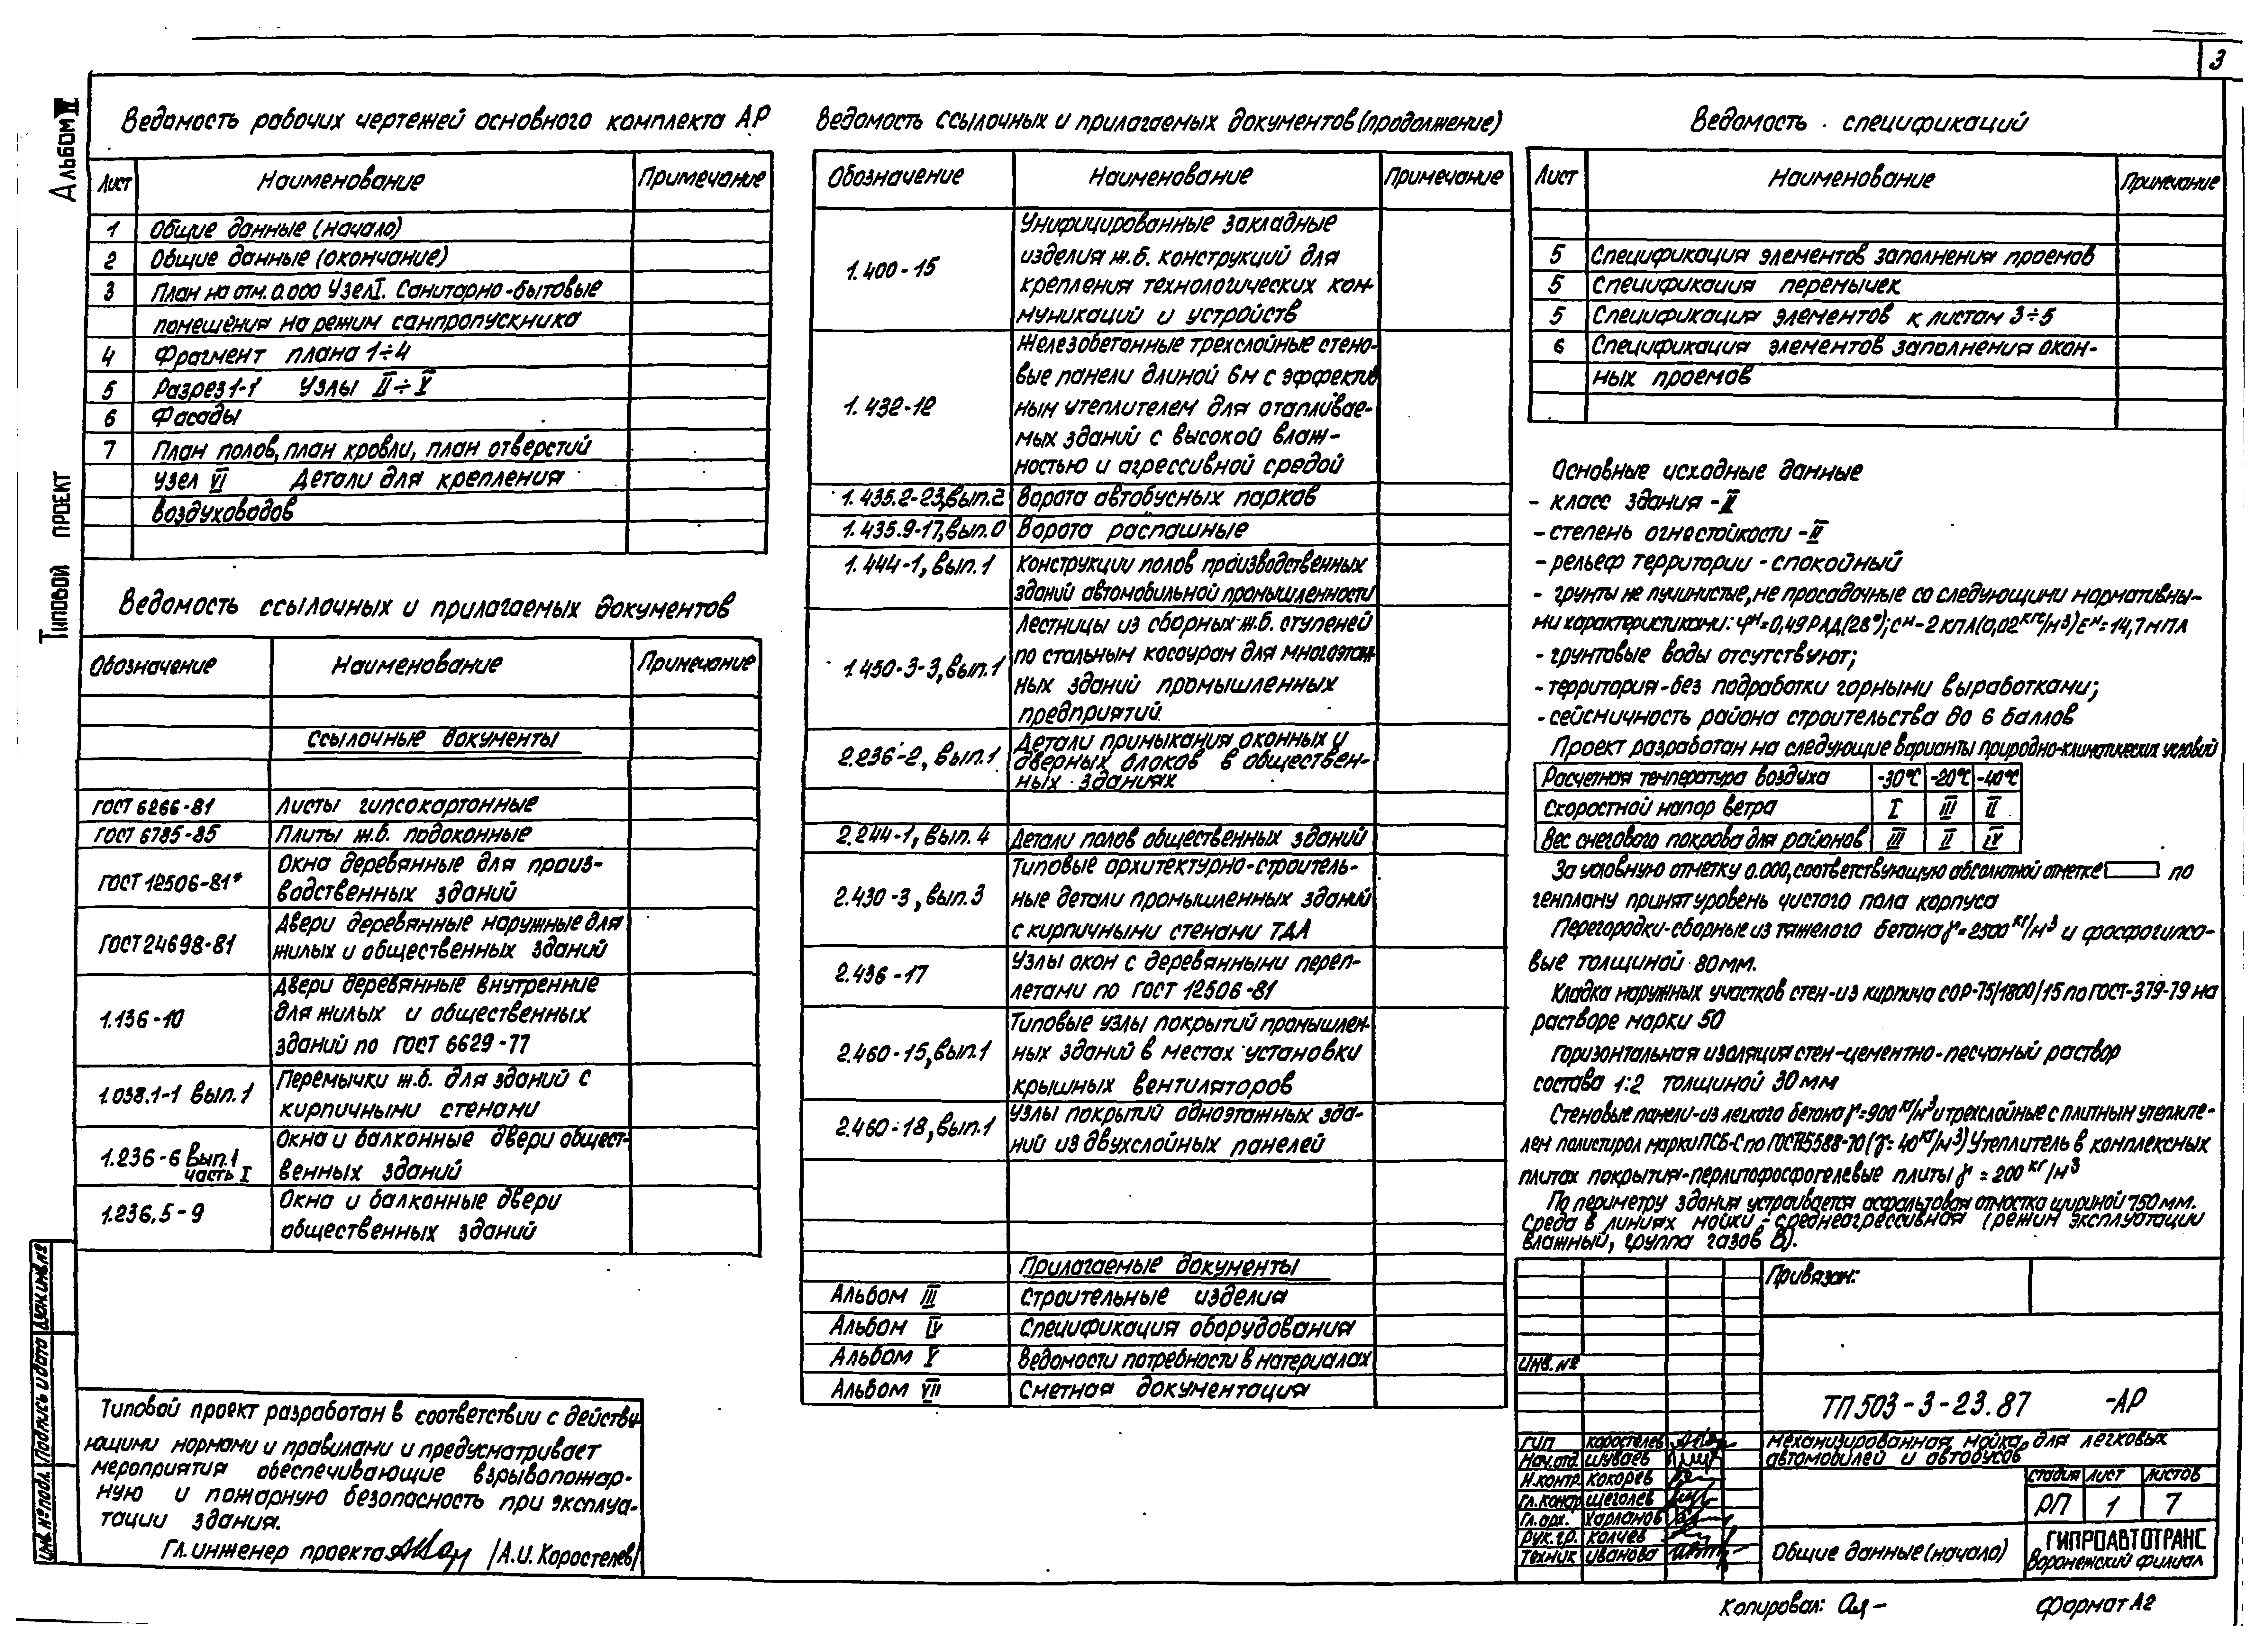 3
Альбом II
Типовой проект
Ведомость рабочих чертежей основного комплекта АР
Лист Наименование Примечание
1 Общие данные (начало)
2 Общие данные (окончание)
3 План на отм. 0.000 Узел I. Санитарно-бытовые
помещения на режим санпропускника
4 Фрагмент плана 1÷4
5 Разрез 1-1 Узлы II÷V
6 Фасады
7 План полов, план кровли, план отверстий
узел VI Детали для крепления
воздуховодов
Ведомость ссылочных и прилагаемых документов
Обозначение Наименование Примечание
Ссылочные документы
ГОСТ 6266-81 Листы гипсокартонные
ГОСТ 6785-85 Плиты ж.б. подоконные
ГОСТ 12506-81* Окна деревянные для произ-
водственных зданий
ГОСТ 24698-81 Двери деревянные наружные для
жилых и общественных зданий
1.136-10 Двери деревянные внутренние
для жилых и общественных
зданий по ГОСТ 6629-77
1.038.1-1 вып.1 Перемычки ж.б. для зданий с
кирпичными стенами
1.236-6 вып.1 часть I Окна и балконные двери общест-
венных зданий
1.236.5-9 Окна и балконные двери
общественных зданий
Типовой проект разработан в соответствии с действу-
ющими нормами и правилами и предусматривает
мероприятия обеспечивающие взрывопожар-
ную и пожарную безопасность при эксплуа-
тации здания.
Гл. инженер проекта /А.И. Коростелев/
Ведомость ссылочных и прилагаемых документов (продолжение)
Обозначение Наименование Примечание
1.400-15 Унифицированные закладные
изделия ж.б. конструкций для
крепления технологических ком-
муникаций и устройств
1.432-12 Железобетонные трехслойные стено-
вые панели длиной 6м с эффектив
ным утеплителем для отапливае-
мых зданий с высокой влаж-
ностью и агрессивной средой
1.435.2-23, вып.2 Ворота автобусных парков
1.435.9-17, вып.0 Ворота распашные
1.444-1, вып.1 Конструкции полов производственных
зданий автомобильной промышленности
1.450-3-3, вып.1 Лестницы из сборных ж.б. ступеней
по стальным косоурам для многоэтаж
ных зданий промышленных
предприятий
2.236-2, вып.1 Детали примыкания оконных и
дверных блоков в обществен-
ных зданиях
2.244-1, вып.4 Детали полов общественных зданий
2.430-3, вып.3 Типовые архитектурно-строитель-
ные детали промышленных зданий
с кирпичными стенами ТДА
2.436-17 Узлы окон с деревянными переп-
летами по ГОСТ 12506-81
2.460-15, вып.1 Типовые узлы покрытий промышлен-
ных зданий в местах установки
крышных вентиляторов
2.460-18, вып.1 Узлы покрытий одноэтажных зда-
ний из двухслойных панелей
Прилагаемые документы
Альбом III Строительные изделия
Альбом IV Спецификация оборудования
Альбом V Ведомости потребности в материалах
Альбом VII Сметная документация
Ведомость спецификаций
Лист Наименование Примечание
5 Спецификация элементов заполнения проемов
5 Спецификация перемычек
5 Спецификация элементов к листам 3÷5
6 Спецификация элементов заполнения окон-
ных проемов
Основные исходные данные
- класс здания - II
- степень огнестойкости - II
- рельеф территории - спокойный
- грунты не пучинистые, не просадочные со следующими нормативны-
ми характеристиками: φн=0,49 РАД (28°); Сн-2 КПА (0,02 кгс/м3) Ен=14,7 МПА
- грунтовые воды отсутствуют;
- территория - без подработки горными выработками;
- сейсмичность района строительства до 6 баллов
Проект разработан на следующие варианты природно-климатических условий
Расчетная температура воздуха -30°С -20°С -40°С
Скоростной напор ветра I III II
Вес снегового покрова для районов III II IV
За условную отметку 0.000, соответствующую абсолютной отметке по
генплану принят уровень чистого пола корпуса
Перегородки-сборные из тяжелого бетона γ=2500 кг/м3 и фосфогипсо-
вые толщиной 80мм.
Кладка наружных участков стен-из кирпича СОР-75/1800/15 по ГОСТ-379-79 на
растворе марки 50
Горизонтальная изоляция стен-цементно-песчаный раствор
состава 1:2 толщиной 30мм
Стеновые панели-из легкого бетона γ=900 кг/м3 и трехслойные с плитным утеплите-
лем полистирол марки ПСБ-С по ГОСТ15588-70 (γ=40 кг/м3) Утеплитель в комплексных
плитах покрытия-перлитофосфогелевые плиты γ=200 кг/м3
По периметру здания устраивается асфальтовая отмостка шириной 750мм.
Среда в линиях мойки - среднеагрессивная (режим эксплуатации
влажный, группа газов В).
Привязан:
Инв. №
ТП 503-3-23.87 -АР
Механизированная мойка для легковых
автомобилей и автобусов
ГИП Коростелев
Нач.отд. Шуваев
Н.контр. Кокорев
Гл.констр Щеголев
Гл.арх. Харланов
Рук.гр. Колчев
Техник Иванова
Стадия Лист Листов
РП 1 7
Общие данные (начало)
ГИПРОАВТОТРАНС
Воронежский филиал
Инв. № подл. Подпись и дата Взам.инв.№
Копировал:
Формат А2